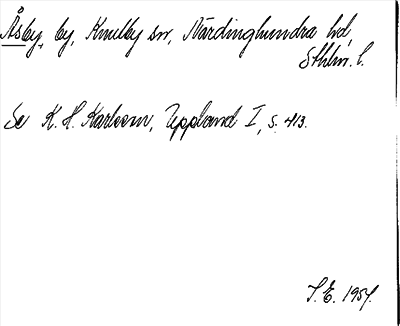 Åsby, by, Knutby sn, Närdinghundra hd,
Sthlm. l.
Se K. H. Karlsson, Uppland I, s. 413.
S. E. 1954.